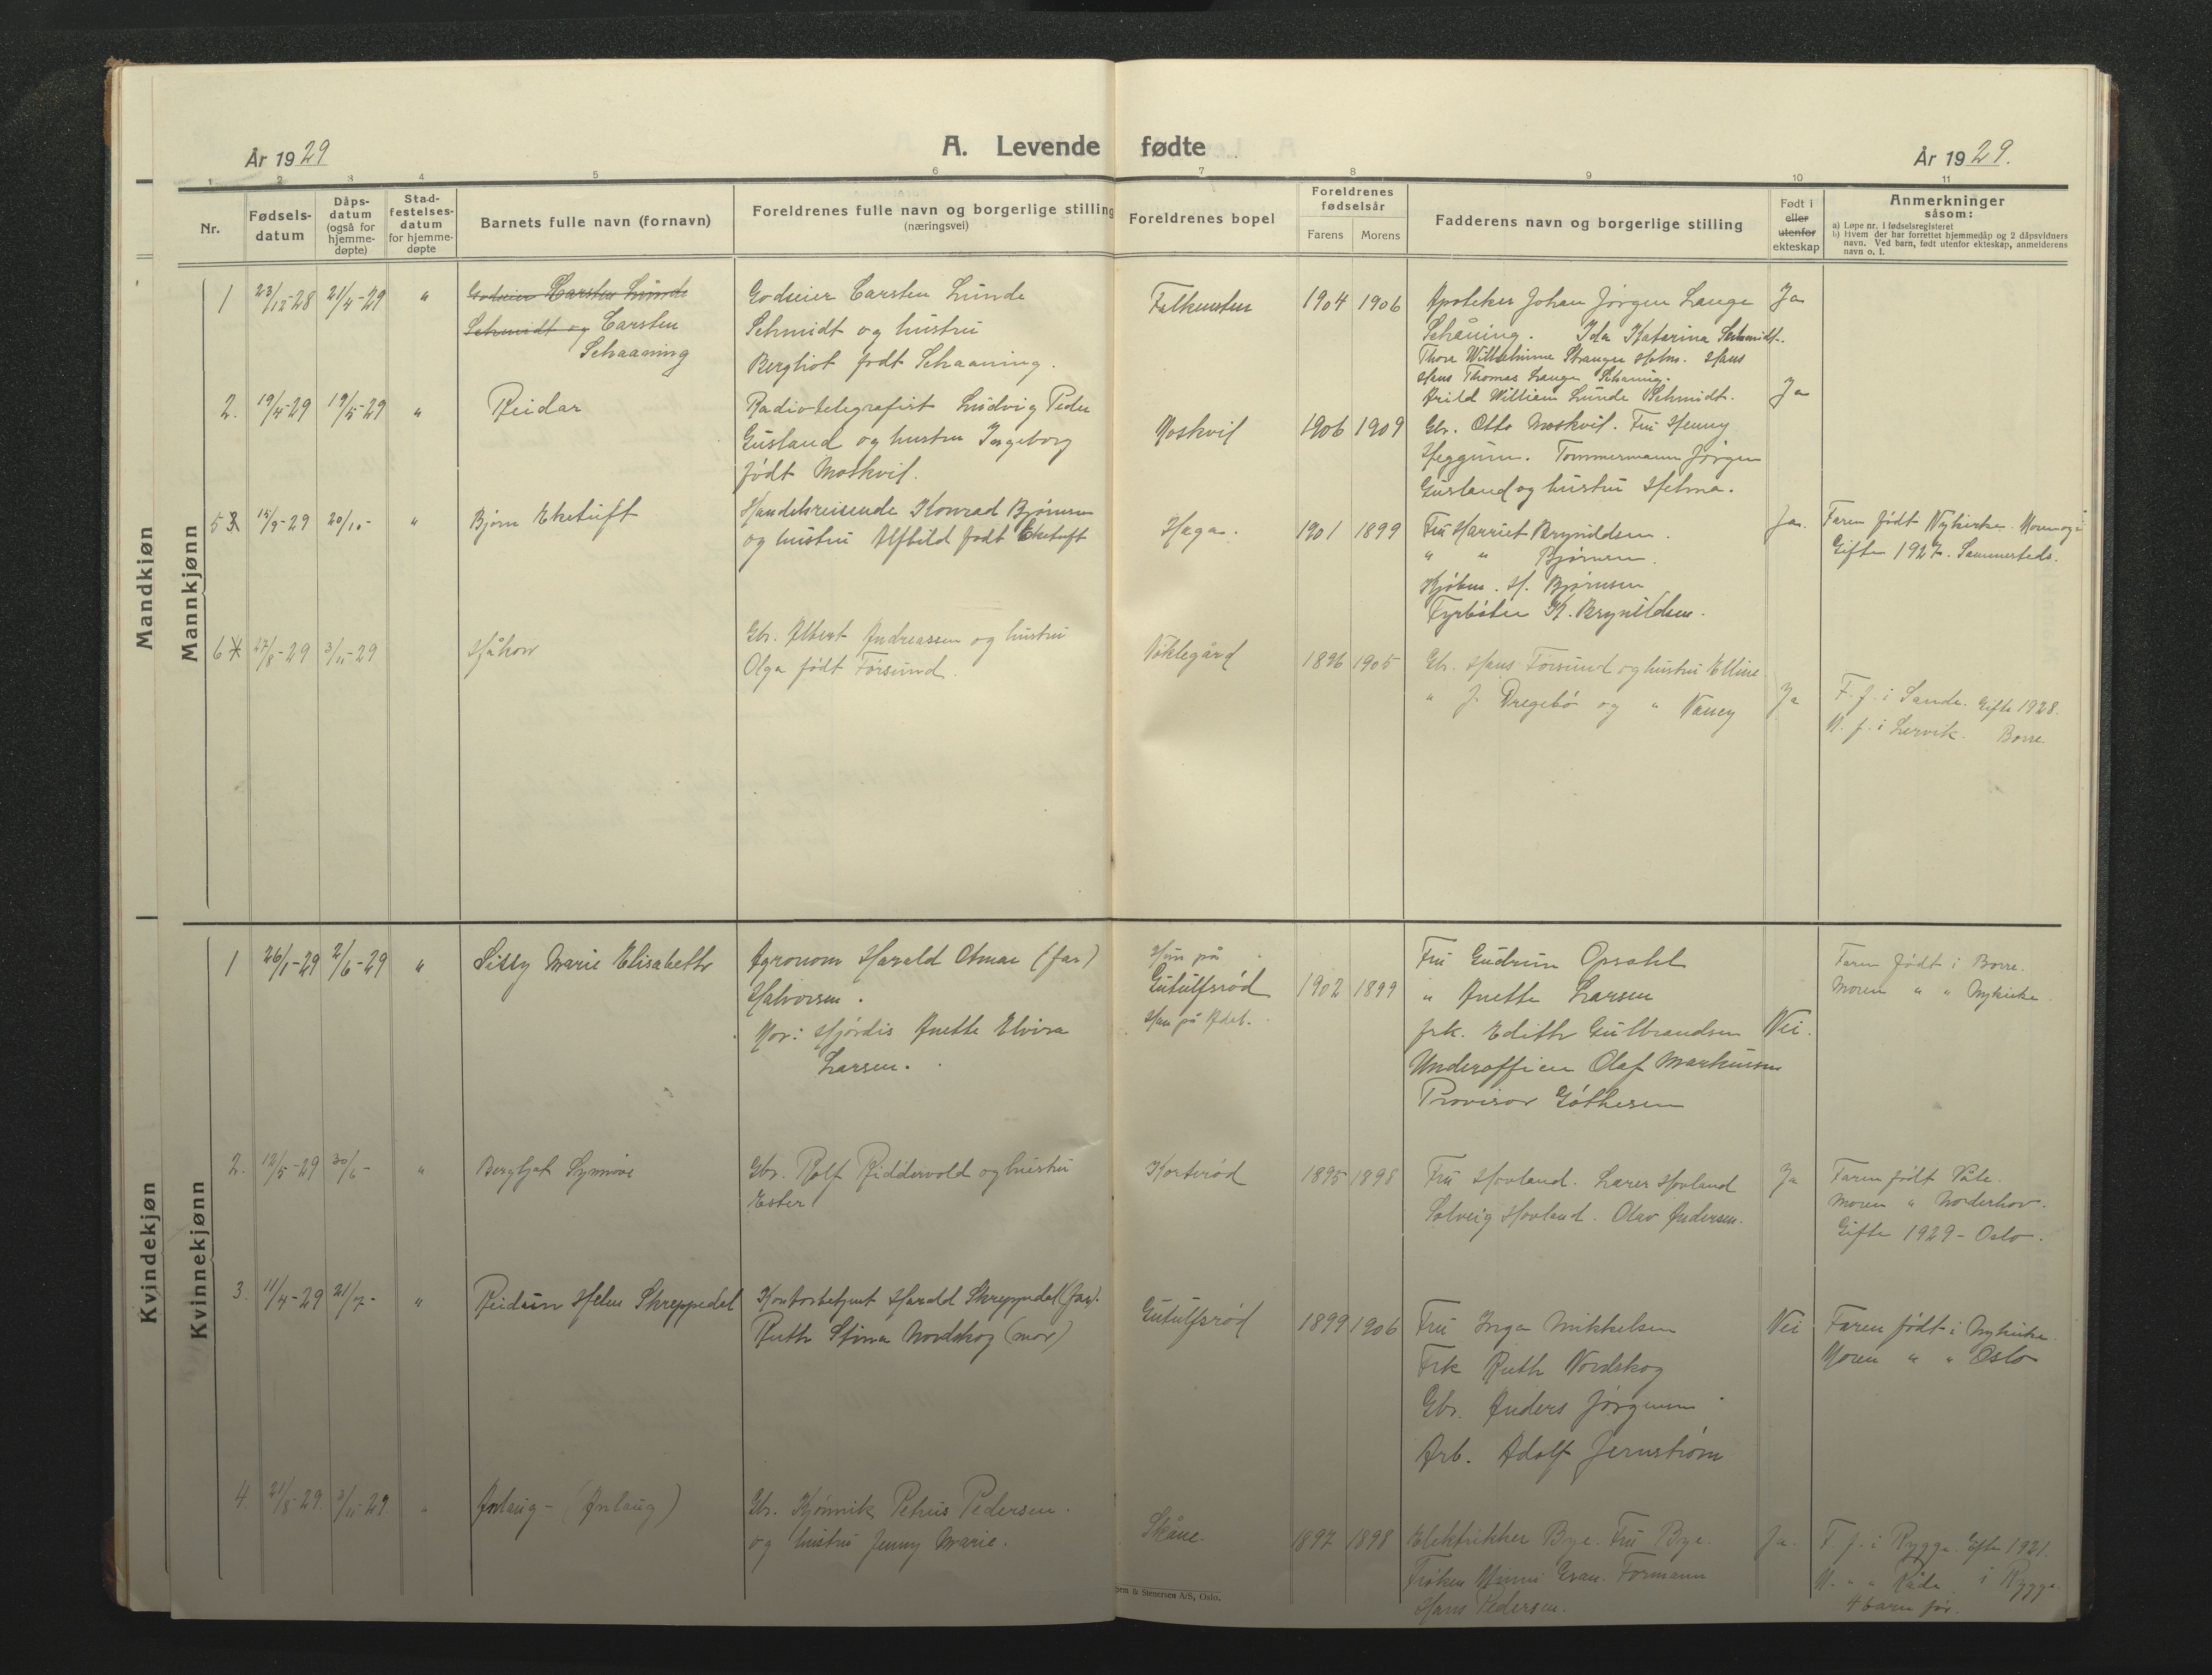 År 1929
A. Levende fødte
År 1929.
1 2 3 4 5 6 7 8 9 10 11
Nr.
Fødsels-
datum
Dåps-
datum
(også for
hjemme-
døpte)
Stad-
festelses-
datum
for hjemme-
døpte
Barnets fulle navn (fornavn)
Foreldrenes fulle navn og borgerlige stilling
(næringsvei)
Foreldrenes bopel
Foreldrenes
fødselsår
Farens Morens
Fadderens navn og borgerlige stilling
Født i
eller
utenfor
ekteskap
Anmerkninger
såsom:
a) Løpe nr. i fødselsregisteret
b) Hvem der har forrettet hjemmedåp og 2 dåpsvidners
navn. Ved barn, født utenfor ekteskap, anmelderens
navn o. l.
Mandkjøn
Mannkjønn
1 23/12-28 21/4-29 "
Godseier Carsten Lunde
Schmidt og Carsten
Schaaning
Godseier Carsten Lunde
Schmidt og hustru
Bergliot født Schaaning.
Falkensten
1904 1906
Apoteker Johan Jørgen Lange
Schåning. Ida Katarina Schmidt.
Thora Wilhelmine Stranger Holm. Hans
Hans Thomas Lange Schaning.
Arild William Lunde Schmidt.
Ja
2. 19/4-29 19/5-29 "
Reidar
Radiotelegrafist Ludvig Peder
Gusland og hustru Ingeborg
født Moskvil.
Moskvil
1906 1909
Gbr. Otto Moskvil. Fru Henny
Heggum. Tømmermann Jørgen
Gusland og hustru Helma.
Ja
5 3 15/9-29 20/10- "
Bjørn Eketuft
Handelsreisende Konrad Bjørnsen
og hustru Alfhild født Eketuft
Haga.
1901 1899
Fru Harriet Brynildsen.
" " Bjørnsen.
Kjøbm. H. Bjørnsen
Fyrbøter K. Brynildsen.
Ja.
Faren født Nykirke. Moren og i
Gifte 1927. Sammesteds.
6 4 27/8-29 3/11-29
Håkon
Gbr. Albert Andreassen og hustru
Olga født Førsund.
Vøklegård
1896 1905
Gbr. Hans Førsund og hustru Elline
" J. Dregebø og " Nancy
Ja
F. f. i Sande. Gifte 1928.
M. f. i Lervik. Borre.
Kvindekjøn
Kvinnekjønn
1 26/1-29 2/6-29 "
Lissy Marie Elisabeth
Agronom Harald Otmar (far)
Halvorsen.
Mor: Hjørdis Anette Elvira
Larsen.
Hun på
Gutulfsrød
Han på Adal.
1902 1899
Fru Gudrun Opsahl
" Anette Larsen
Frk. Edith Gulbrandsen
Underofficer Olaf Markussen
Provisor Gøthesen
Nei.
Faren født i Borre.
Moren " " Nykirke.
2. 12/5-29 30/6- "
Bergljot Synnøve
Gbr. Rolf Riddervold og hustru
Ester
Korterød
1895 1898
Fru Hovland. Lærer Hovland
Solveig Hovland. Olav Andersen.
Ja
Faren født Våle.
Moren " Norderhov.
Gifte 1929 - Oslo.
3. 11/4-29 21/7- "
Reidun Helen Skreppedal
Kontorbetjent Harald Skreppedal (far).
Ruth Stina Nordskog (mor)
Gutulfsrød
1899 1906
Fru Inga Mikkelsen
Frk Ruth Nordskog
Gbr. Anders Jørgensen
Arb. Adolf Jernstrøm
Nei
Faren født i Nykirke.
Moren " " Oslo
4. 21/8-29. 3/11-29. "
Aslaug - (Aslaug)
Gbr. Kjønnik Petrus Pedersen.
og hustru Jenny Marie.
Skåne.
1897 1898
Elektrikker Bye. Fru Bye.
Frøken Minni Gran. Formann
Hans Pedersen.
Ja.
F. f. i Rygge. Gifte 1921.
M. " " Råde. i Rygge.
4 barn før.
& Stenersen A/S, Oslo.